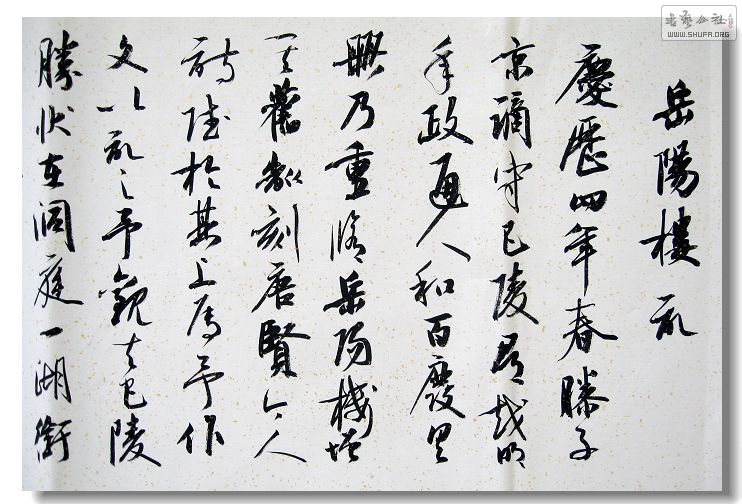 岳陽樓記
慶歷四年春滕子
京謫守巴陵郡越明
年政通人和百廢具
興乃重修岳陽樓增
其舊制刻唐賢今人
詩賦於其上屬予作
文以記之予觀夫巴陵
勝狀在洞庭一湖銜
书艺公社
WWW.SHUFA.ORG